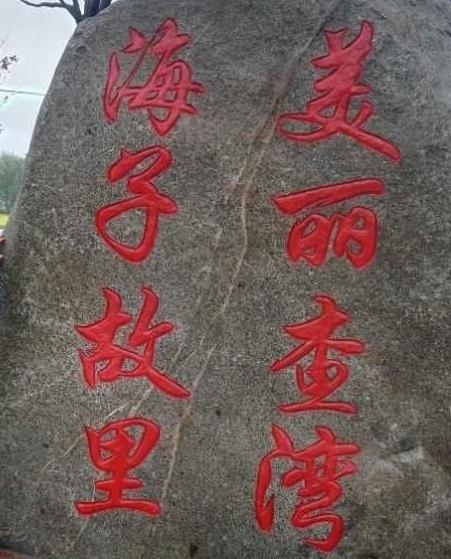 美丽查湾
海子故里